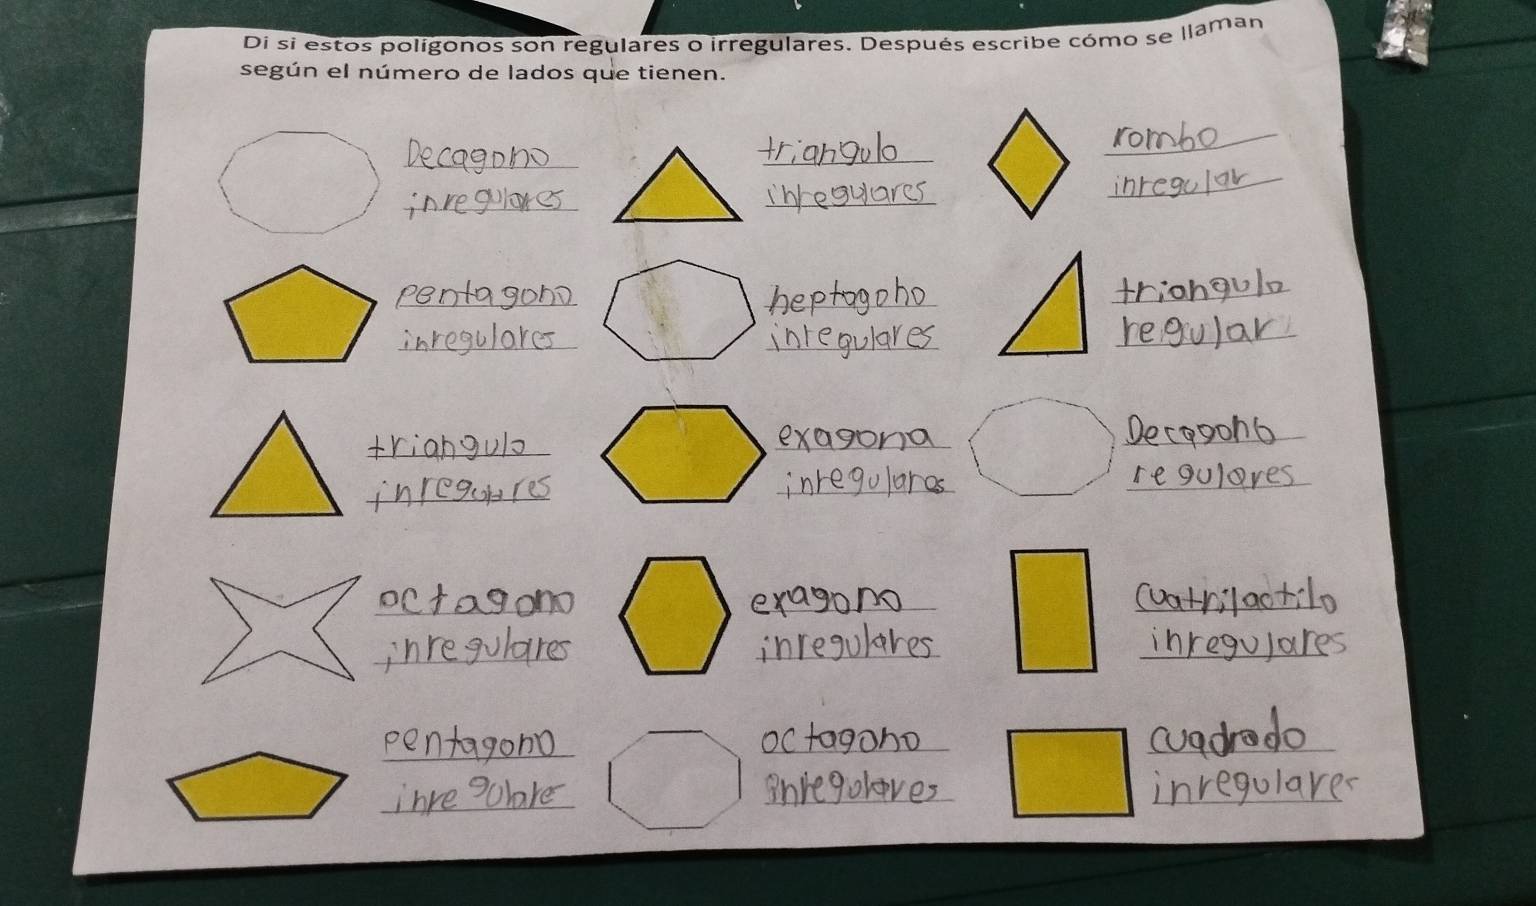 Di si estos polígonos son regulares o irregulares. Después escribe cómo se llaman
según el número de lados que tienen.
Decagono
inregulares
triangulo
inregulares
rombo
inregular
pentagono
inregulares
heptogono
inregulares
triongulo
regular
triangulo
inregulares
exagona
inregulares
Decagono
regulores
octagono
inregulares
exagono
inregulares
cuatrilactilo
inregulares
pentagono
inregolares
octagono
inregolares
cuadrado
inregulares